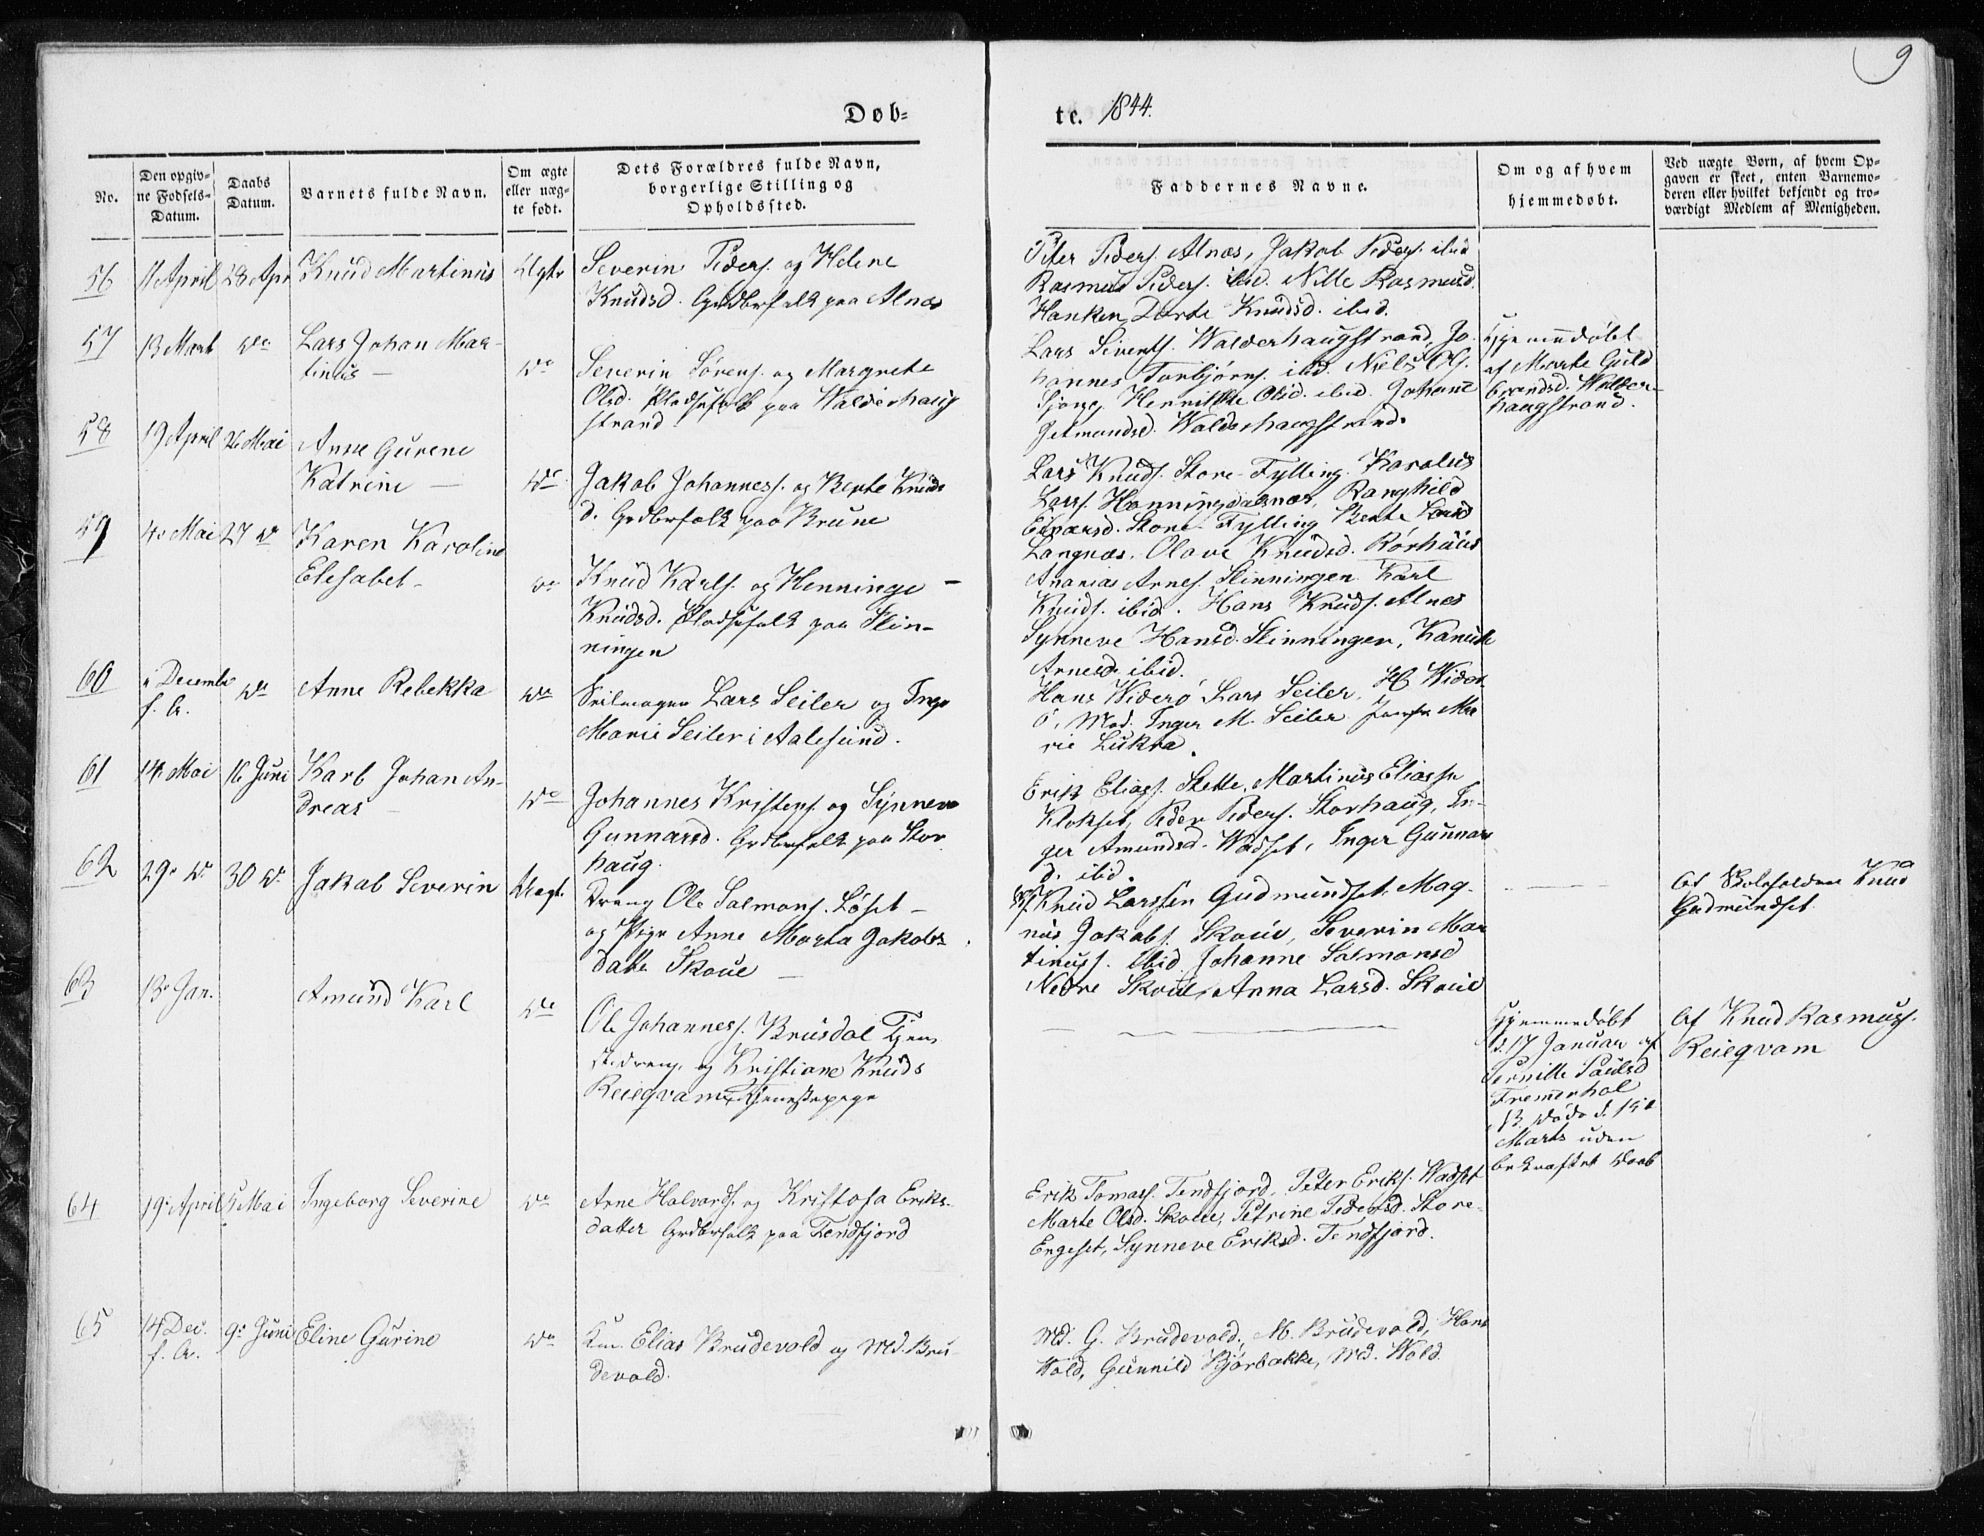 9
Døb-
te. 1844.
No.
Den opgiv-
ne Fødsels-
Datum.
Daabs
Datum.
Barnets fulde Navn.
Om ægte
eller uæg-
te født.
Dets Forældres fulde Navn,
borgerlige Stilling og
Opholdssted.
Faddernes Navne.
Om og af hvem
hjemmedøbt.
Ved uægte Børn, af hvem Op-
gaven er skeet, enten Barnemo-
deren eller hvilket bekjendt og tro-
værdigt Medlem af Menigheden.
56
11 April
28 Apr
Knud Martinus
Ægte
Severin Peders. og Helene
Knudsd. Grdbrfolk paa Alnæs
Peter Peders. Alnæs, Jakob Peders. ibid
Rasmus Peders. ibid. Nille Rasmusd.
Hanken, Dorte Knudsd. ibid.
57
13 Mart
do
Lars Johan Mar-
tinus —
do
Severin Sørens. og Margrete
Olsd. Pladsefolk paa Walderhaug
strand
Lars Siverts. Walderhaugstrand, Jo-
hannes Torbjørns. ibid. Niels Ols.
Olsd. ibid. Johane
Walderhaugstrand.
Hjemmedøbt
af Marte Guld
brandsd. Walder-
haugstrand.
58
19 April
26 Mai
Anne Gurene
Katrine —
do
Jakob Johanness. og Berte Knuds
d. Grdbrfolk paa Brune
Lars Knuds. Store-Fylling. Karolus
Larss. Honningdalsnæs, Ranghild
Edvarsd. Store-Fylling Bente Larsd
Langnæs. Olave Knudsd. Rørhuus
59
4. Mai
27 do
Karen Karoline
Elesabet —
do
Knud Karls. og Henninge —
Knudsd. Pladsefolk paa Slin-
ningen
Ananias Arnes. Slinningen Karl
Knuds. ibid. Hans Knuds. Alnes
Synneve Hansd. Slinningen,
Arnesd. ibid.
60
Decembr
f. A.
do
Anne Rebekka
do
Seilmager Lars Seiler og Inger
Marie Seiler i Aalesund.
Hans Widerø Lars Seiler. H Wider
ø, Mad. Inger M. Seiler Jomfr Ma
rie Lukra.
61
14 Mai
16 Juni
Karl Johan An-
dreas —
do
Johannes Kristens. og Synneve
Gunnarsd. Grdbrfolk paa Stor
haug.
Erik Eliass. Stette, Martinus Eliassn
Klokset, Peder Peders. Storhaug, In-
ger Amundsd. Wadset, Inger Gunnars
d. ibid.
62
29. do
30 do
Jakob Severin
Uægt.
Dreng Ole Salmons. Løset —
og Pige Anne Marta Jakobs-
datter Skoue —
Knud Larssen Gudmundset. Mag-
nus Jakobs. Skoue, Severin Mar
tinuss. ibid Johanne Salmonsd
Nedre Skoue, Anna Larsd. Skoue
Af Skoleholder Knud
Gudmundset.
63
13. Jan.
Amund Karl
do
Ole Johanness. Brusdal Tjene
stedreng, og Kristiane Knuds
Reiegvam, Tjenestepige
Hjemmedøbt
d. 17 Januar af
Pernille Paulsd
Fremerhol
B. døde d. 15
Marts uden
bekræftet Daab
Af Knud Rasmuss.
Reiegvam
64
19. April
5 Mai
Ingeborg Severine
do
Arne Halvards. og Kristofa Eriks-
datter Grdbrfolk paa Tendfjord
Erik Tomass. Tendfjord, Peter Eriks. Wadset
Marte Olsd. Skoue, Petrine Pedersd. Store-
Engeset, Synneve Eriksd. Tendfjord.
65
14 Dec.
f. A.
9. Juni
Eline Gurine
do
Elias Brudevold og Md. Bru-
devold.
Md. G. Brudevold, M. Brudevold, Hans
Wold, Gunnild Bjørbakke, Md. Wold.